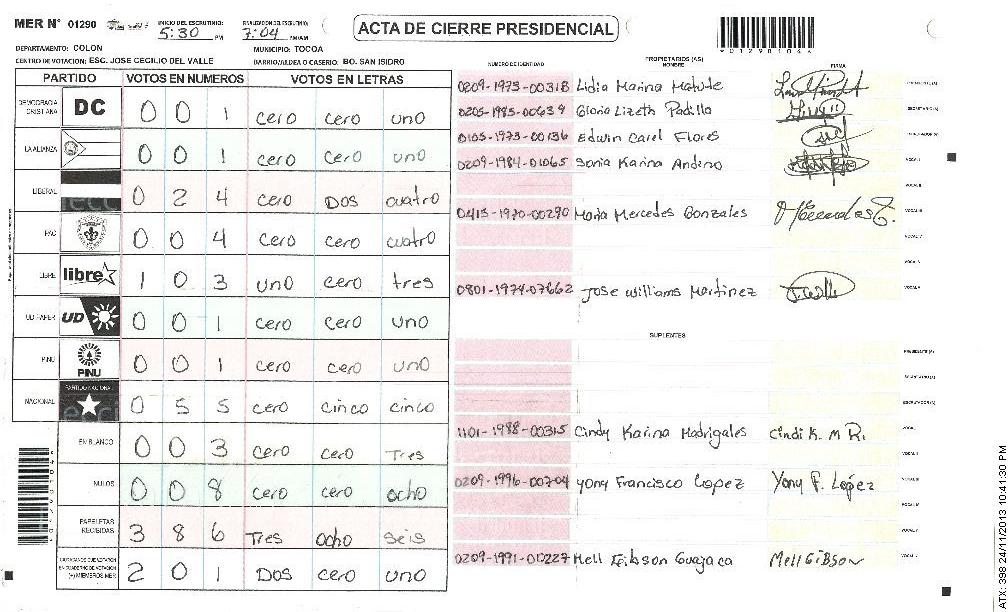 MER N° 01290
INICIO DEL ESCRUTINIO: 5:30 PM
FINALIZACION DEL ESCRUTINIO: 7:04 PM/AM
ACTA DE CIERRE PRESIDENCIAL
*01290104*
DEPARTAMENTO: COLON
MUNICIPIO: TOCOA
CENTRO DE VOTACION: ESC. JOSE CECILIO DEL VALLE
BARRIO/ALDEA O CASERIO: BO. SAN ISIDRO
PARTIDO VOTOS EN NUMEROS VOTOS EN LETRAS
DEMOCRACIA CRISTIANA DC 0 0 1 cero cero uno
LA ALIANZA 0 0 1 cero cero uno
LIBERAL 0 2 4 cero DOS cuatro
PAC 0 0 4 cero cero cuatro
LIBRE libre 1 0 3 uno cero tres
UD FAPER UD 0 0 1 cero cero uno
PINU PINU 0 0 1 cero cero uno
NACIONAL PARTIDO NACIONAL 0 5 5 cero cinco cinco
EN BLANCO 0 0 3 cero cero Tres
NULOS 0 0 8 cero cero ocho
PAPELETAS RECIBIDAS 3 8 6 Tres ocho seis
CIUDADANOS QUE VOTARON EN CUADERNO DE VOTACION (+) MIEMBROS MER 2 0 1 DOS cero uno
PROPIETARIOS (AS)
NUMERO DE IDENTIDAD NOMBRE FIRMA
0209-1975-00318 Lidia Marina Matute PRESIDENTE (A)
0205-1985-00639 Gloria Lizeth Padilla SECRETARIO (A)
0105-1973-00136 Edwin Carel Flores ESCRUTADOR (A)
0209-1984-01065 Sonia Karina Andino VOCAL I
VOCAL II
0413-1970-00290 Maria Mercedes Gonzales VOCAL III
VOCAL IV
VOCAL V
0801-1974-07662 Jose Williams Martinez
SUPLENTES
PRESIDENTE (A)
SECRETARIO (A)
ESCRUTADOR (A)
1101-1988-00315 Cindy Karina Madrigales Cindi K. M R. VOCAL I
VOCAL II
0209-1996-00704 Yony Francisco Lopez Yony F. López VOCAL III
VOCAL IV
VOCAL V
0209-1991-01227 Mell Gibson Guajaca Mell Gibson
ATX: 398 24/11/2013 10:41:30 PM